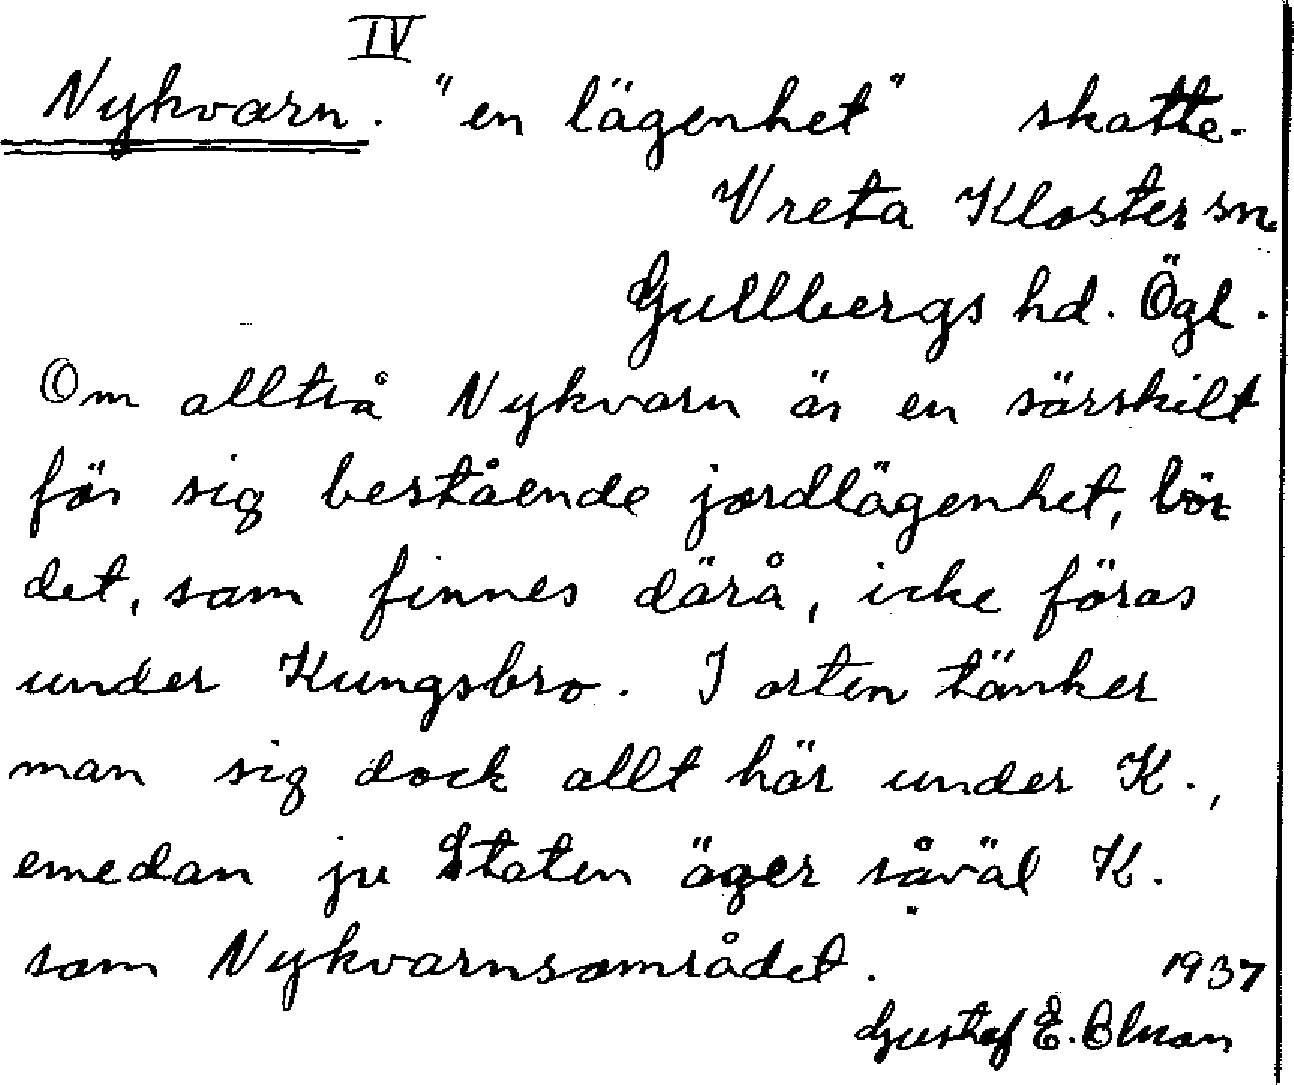 IV
Nykvarn. "en lägenhet" skatte.
Vreta Kloster sn.
Gullbergs hd. Ögl.
Om alltså Nykvarn är en särskilt
för sig bestående jordlägenhet, bör
det, som finnes därå, icke föras
under Kungsbro. I orten tänker
man sig dock allt här under K.,
emedan ju Staten äger såväl K.
som Nykvarnsområdet. 1937
Gustaf E.